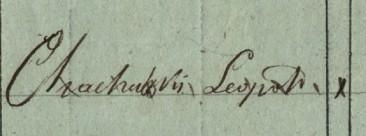 Chachulski Leopold. x